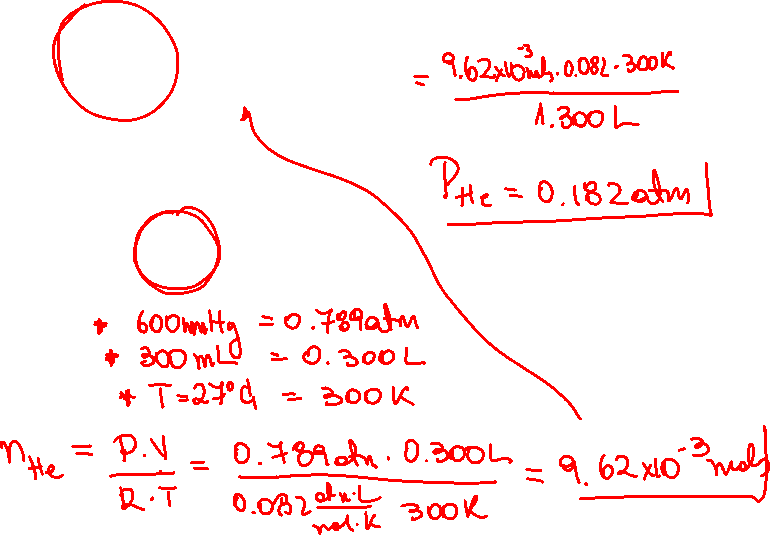 = 9.62x10^-3 mols · 0.082 · 300K / 1.300 L
P_He = 0.182 atm
* 600 mmHg = 0.789 atm
* 300 mL = 0.300 L
* T = 27°C = 300 K
n_He = P.V / R.T = 0.789 atm . 0.300L / 0.082 atm.L / mol.K 300K = 9.62x10^-3 mols